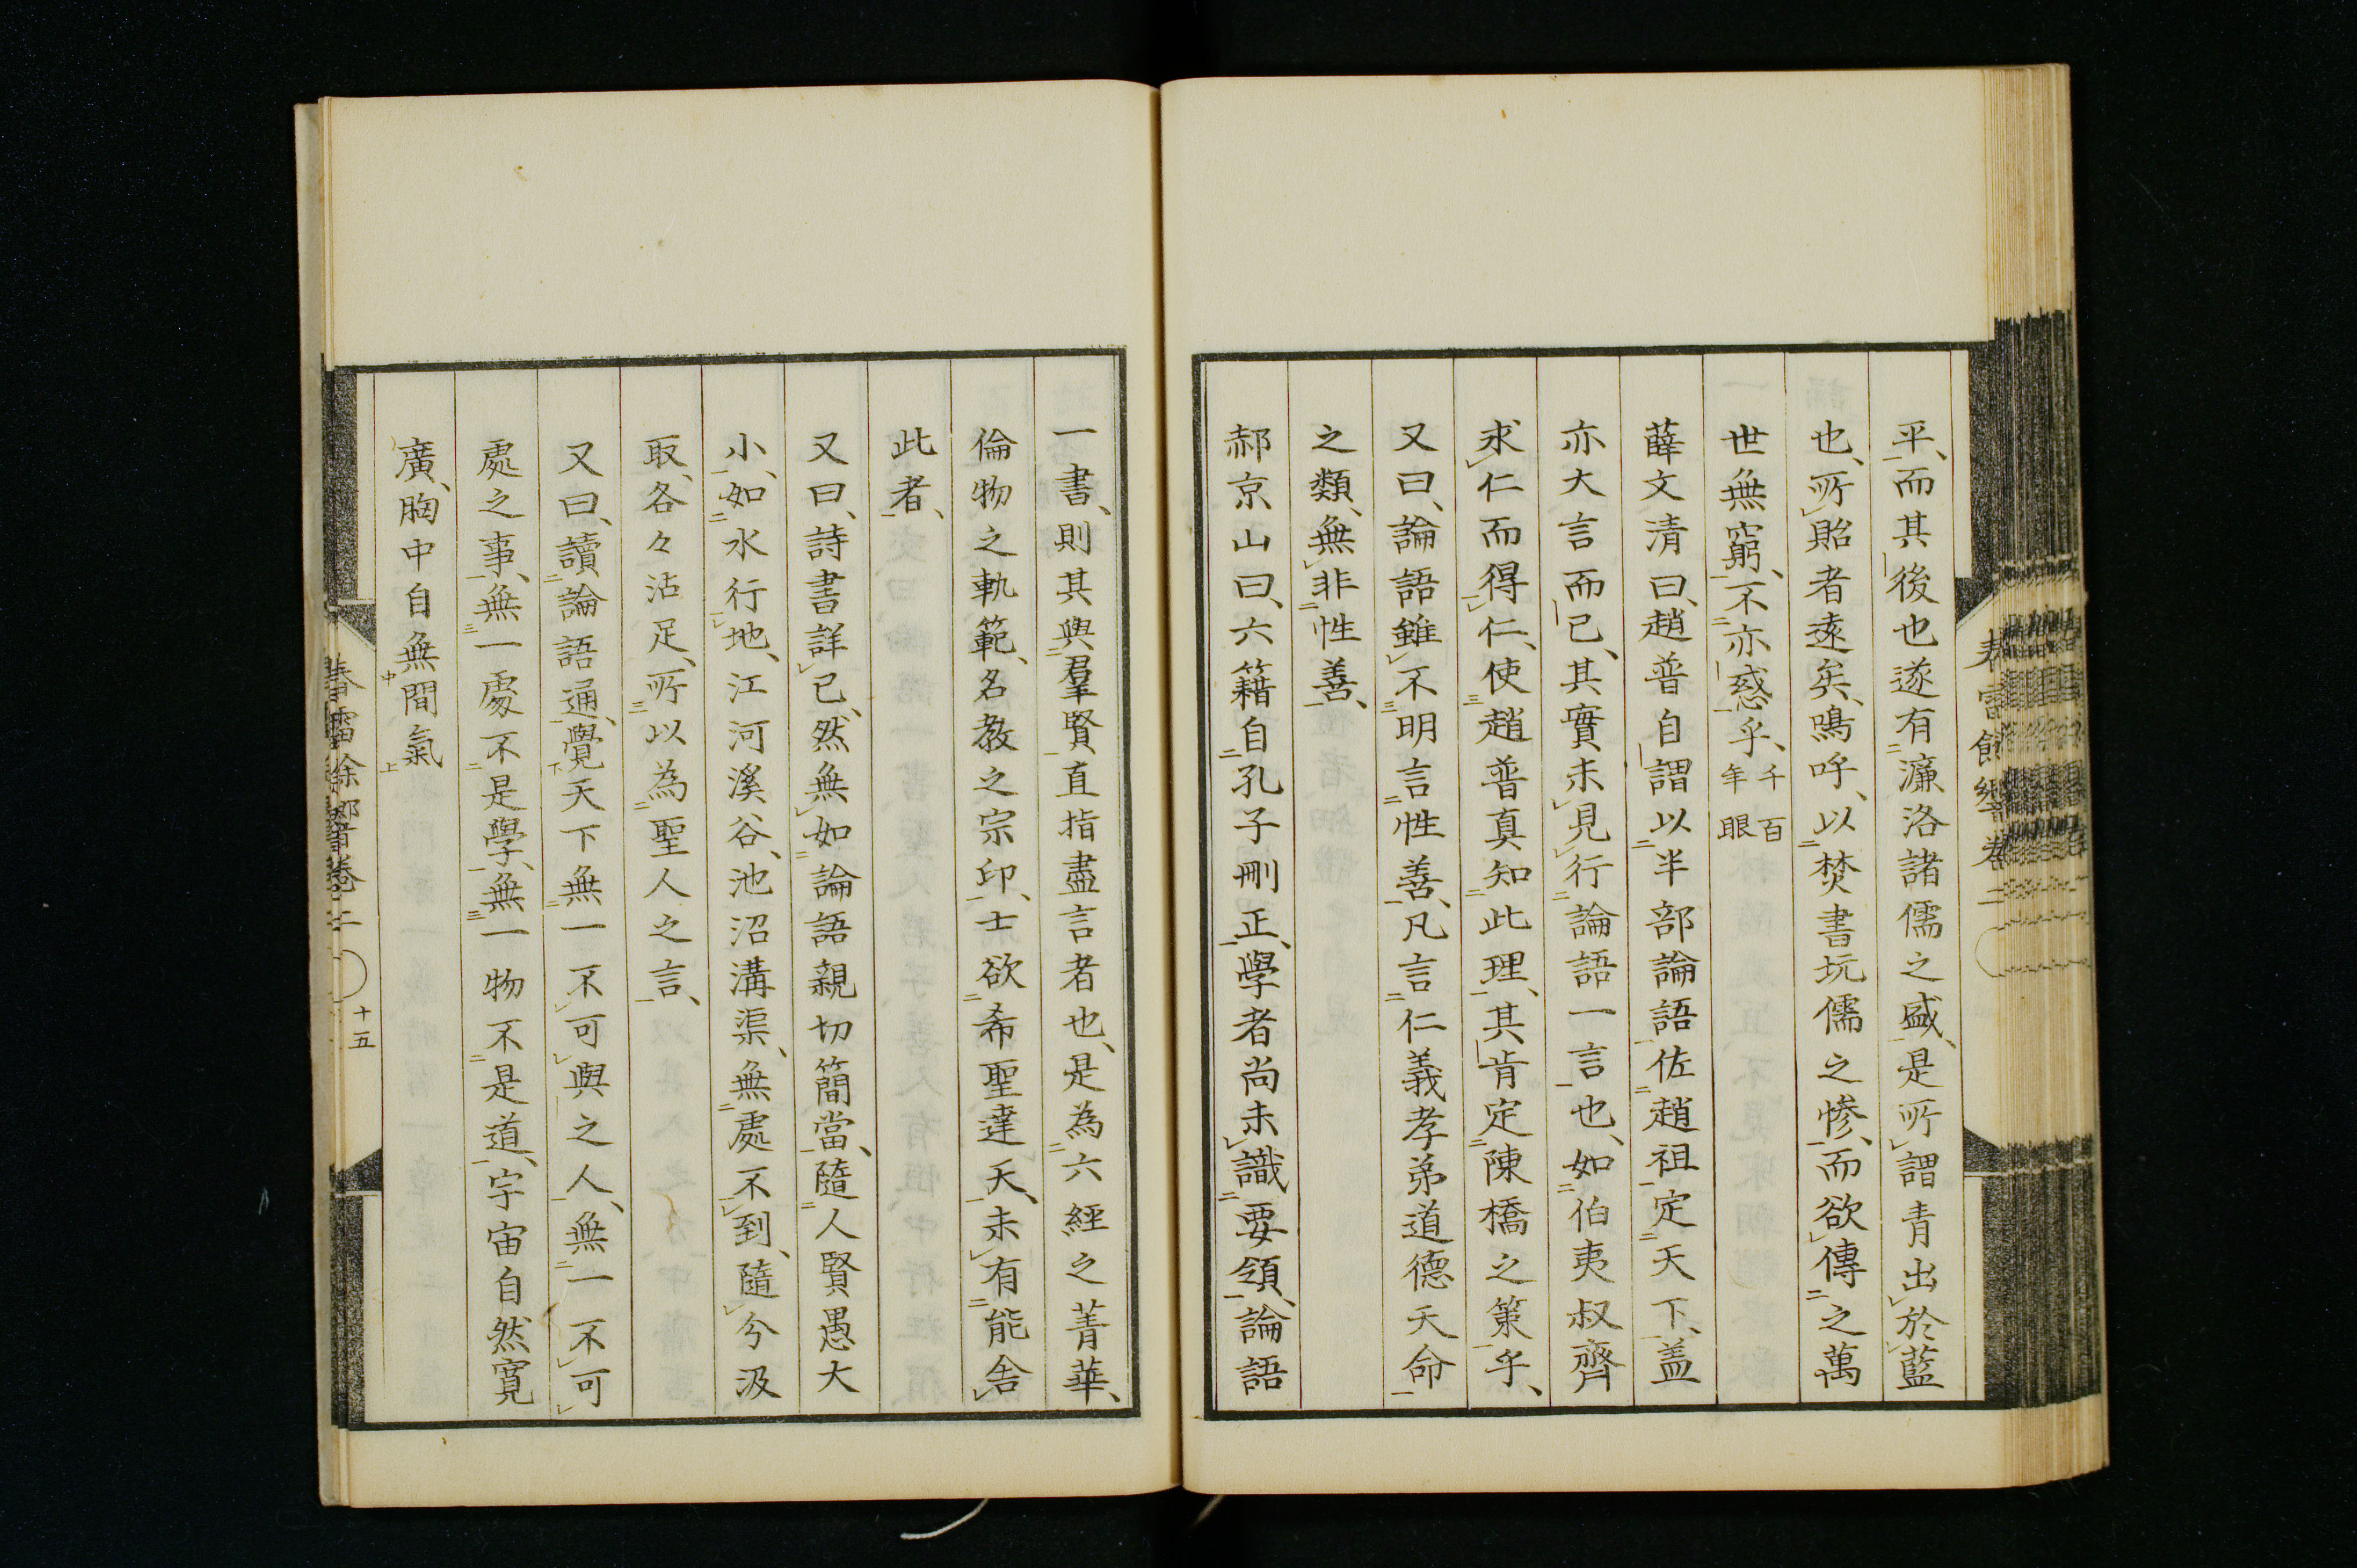 平、而其後也遂有濂洛諸儒之盛、是所謂青出於藍
也、所貽者遠矣、嗚呼、以焚書坑儒之慘、而欲傳之萬
世無窮、不亦惑乎、千百年眼
薛文清曰、趙普自謂以半部論語佐趙祖定天下、盖
亦大言而已、其實未見行論語一言也、如伯夷叔齊
求仁而得仁、使趙普真知此理、其肯定陳橋之策乎、
又曰、論語雖不明言性善、凡言仁義孝弟道德天命
之類、無非性善、
郝京山曰、六籍自孔子刪正、學者尚未識要領、論語
一書、則其與羣賢直指盡言者也、是為六經之菁華、
倫物之軌範、名教之宗印、士欲希聖達天、未有能舍
此者、
又曰、詩書詳已、然無如論語親切簡當、隨人賢愚大
小、如水行地、江河溪谷、池沼溝渠、無處不到、隨分汲
取、各々沾足、所以為聖人之言、
又曰、讀論語通、覺天下無一不可與之人、無一不可
處之事、無一處不是學、無一物不是道、宇宙自然寬
廣、胸中自無間氣
十五